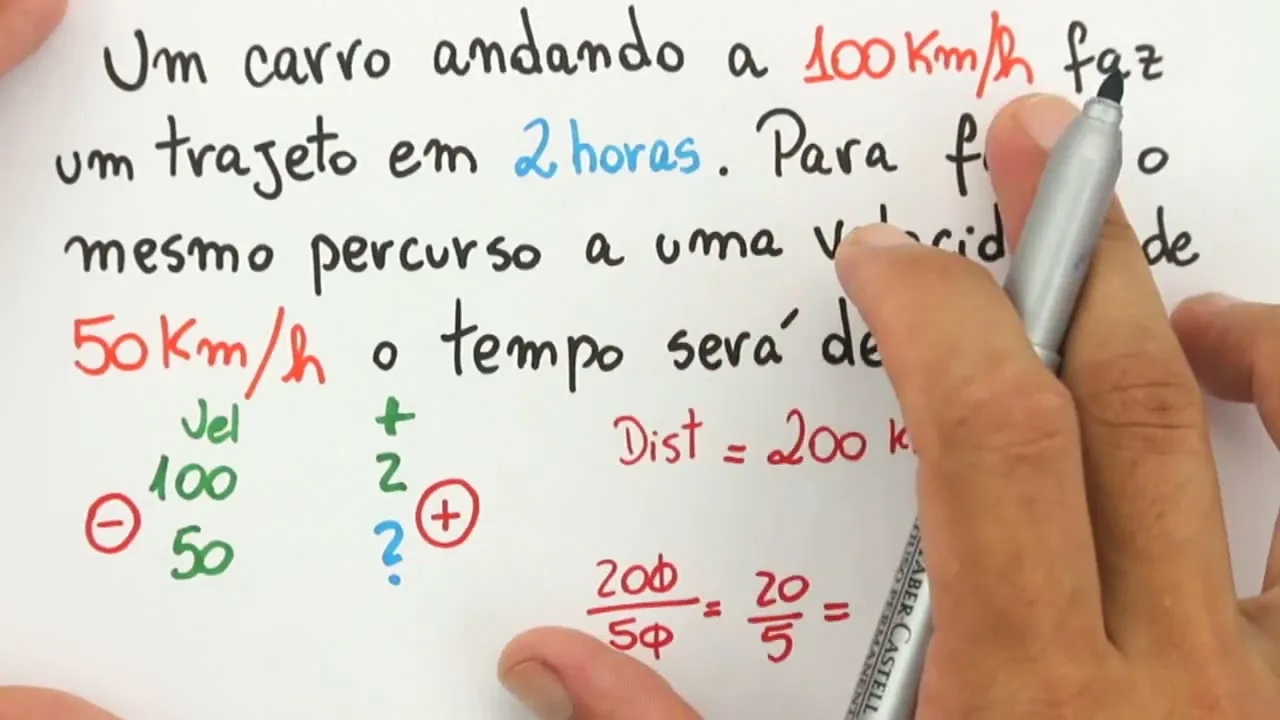 Um carro andando a 100 Km/h faz
um trajeto em 2 horas. Para o
mesmo percurso a uma de
50 Km/h o tempo será de
Vel t
100 2
50 ?
- +
Dist = 200
200/50 = 20/5 =
FABER CASTELL